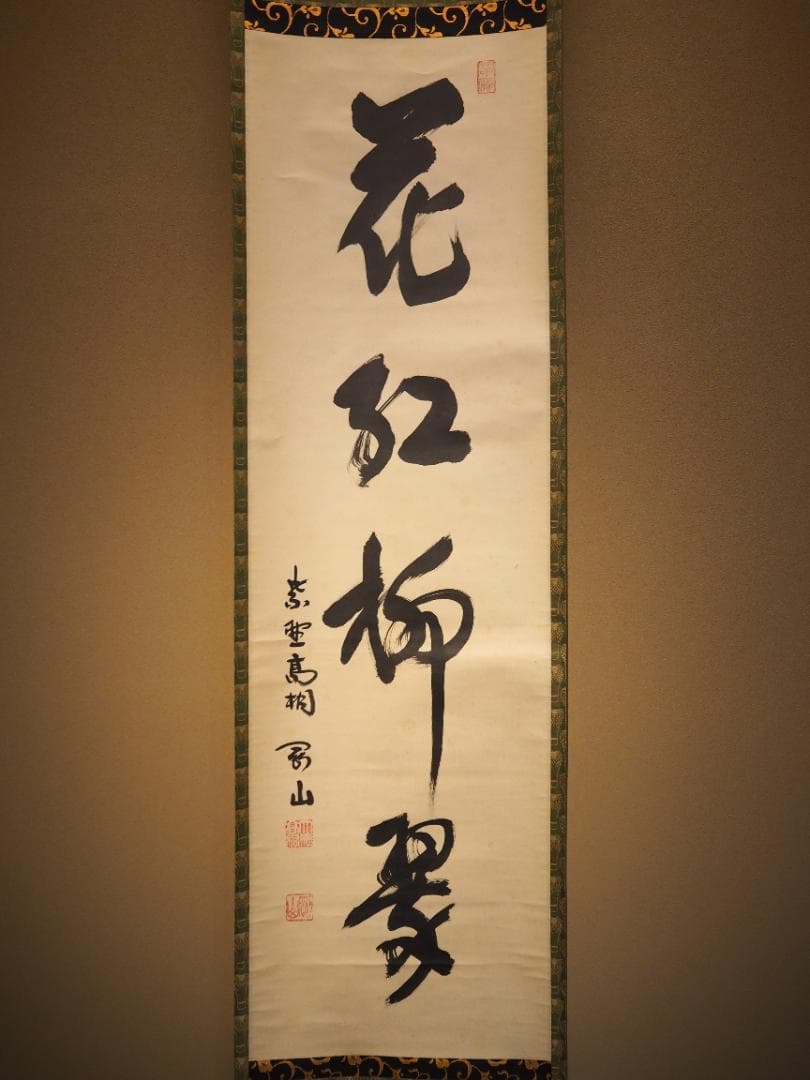 花紅柳翠
紫野高桐 剛山